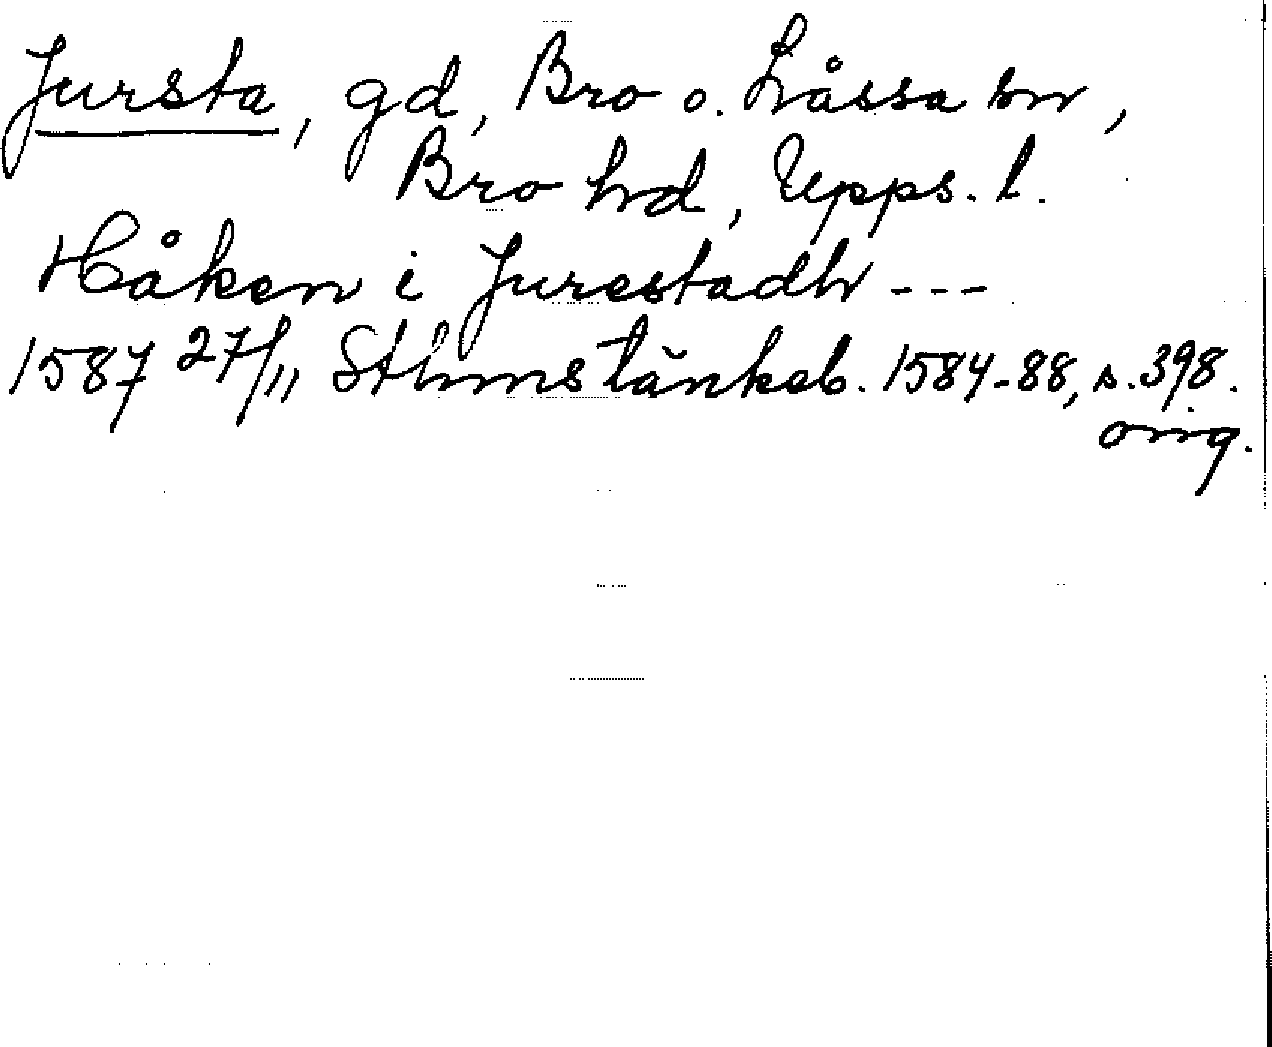 Jursta, gd, Bro o. Låssa snr,
Bro hrd, Upps. l.
Håken i Jurestadh ---
1587 27/11 Sthms tänkeb. 1584-88, s. 398.
orig.